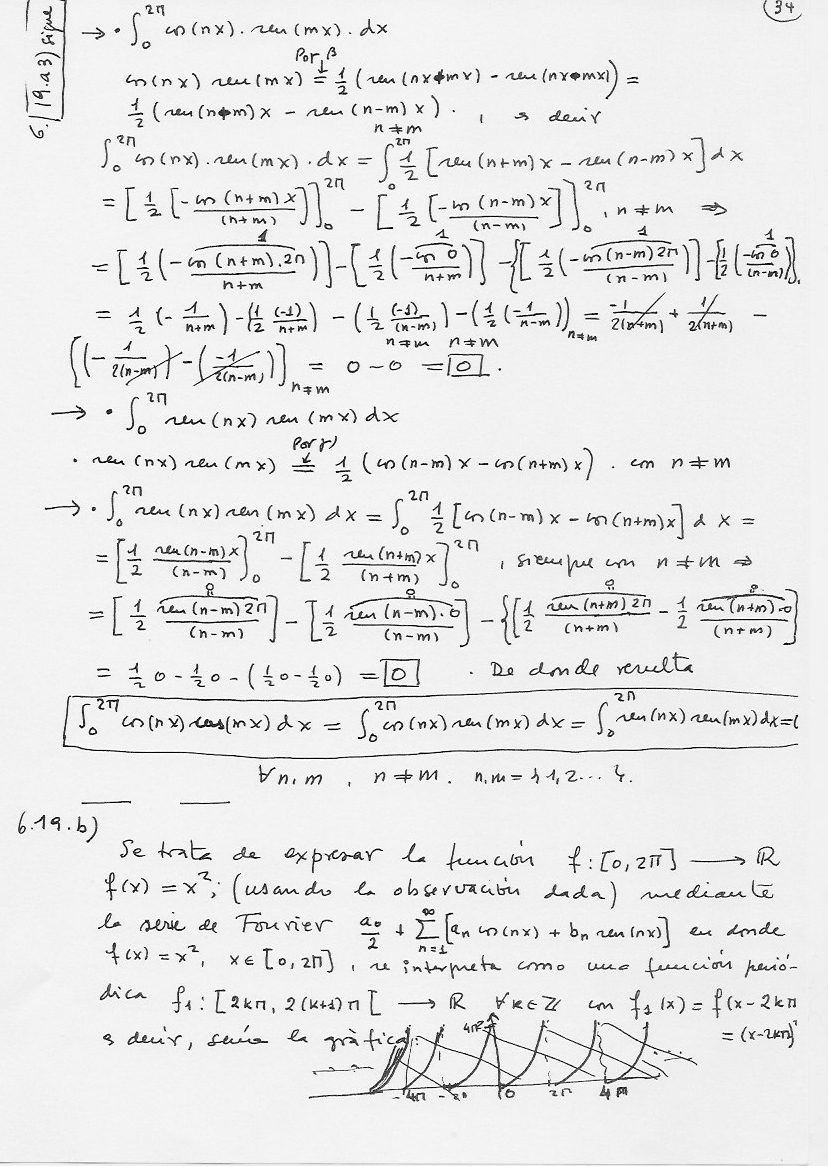 34
6.19.a3) sigue
→ · ∫₀^{2π} cos(nx). sen(mx). dx
Por β
cos(nx) sen(mx) = 1/2 (sen(nx+mx) - sen(nx-mx)) =
1/2 (sen(n+m)x - sen(n-m)x). , es decir
n≠m
∫₀^{2π} cos(nx).sen(mx).dx = ∫₀^{2π} 1/2 [sen(n+m)x - sen(n-m)x] dx
= [1/2 [-cos(n+m)x/(n+m)]]₀^{2π} - [1/2 [-cos(n-m)x/(n-m)]]₀^{2π}, n≠m ⇒
= [1/2 (-cos(n+m).2π/n+m)] - [1/2 (-cos 0/n+m)] - {[1/2 (-cos(n-m)2π/(n-m))] - {1/2 (-cos 0/(n-m))}.
= 1/2 (-1/(n+m)) - (1/2 (-1)/(n+m)) - (1/2 (-1)/(n-m)) - (1/2 (-1/(n-m)))_{n≠m} = -1/2(n+m) + 1/2(n+m) -
n≠m n≠m
{(-1/2(n-m)) - (-1/2(n-m))]_{n≠m} = 0-0 = 0.
→ · ∫₀^{2π} sen(nx) sen(mx) dx
Por γ)
· sen(nx) sen(mx) = 1/2 (cos(n-m)x - cos(n+m)x). con n≠m
→ · ∫₀^{2π} sen(nx) sen(mx) dx = ∫₀^{2π} 1/2 [cos(n-m)x - cos(n+m)x] dx =
= [1/2 sen(n-m)x/(n-m)]₀^{2π} - [1/2 sen(n+m)x/(n+m)]₀^{2π}, siempre con n≠m ⇒
= [1/2 sen(n-m)2π/(n-m)] - [1/2 sen(n-m).0/(n-m)] - {[1/2 sen(n+m)2π/(n+m) - 1/2 sen(n+m).0/(n+m)]
= 1/2 0 - 1/2 0 - (1/2 0 - 1/2 0) = 0 . De donde resulta
∫₀^{2π} cos(nx) cos(mx) dx = ∫₀^{2π} cos(nx) sen(mx) dx = ∫₀^{2π} sen(nx) sen(mx) dx = 0
∀n,m , n≠m. n,m = {1,2...}.
6.19.b)
Se trata de expresar la función f:[0,2π] → ℝ
f(x) = x²; (usando la observación dada) mediante
la serie de Fourier a₀/2 + ∑_{n=1}^{∞} [aₙ cos(nx) + bₙ sen(nx)] en donde
f(x) = x², x∈[0,2π], se interpreta como una función perió-
dica f₁:[2kπ, 2(k+1)π[ → ℝ ∀k∈ℤ con f₁(x) = f(x-2kπ
es decir, sería la gráfica: = (x-2kπ)²
4π²
-4π -2π 0 2π 4π